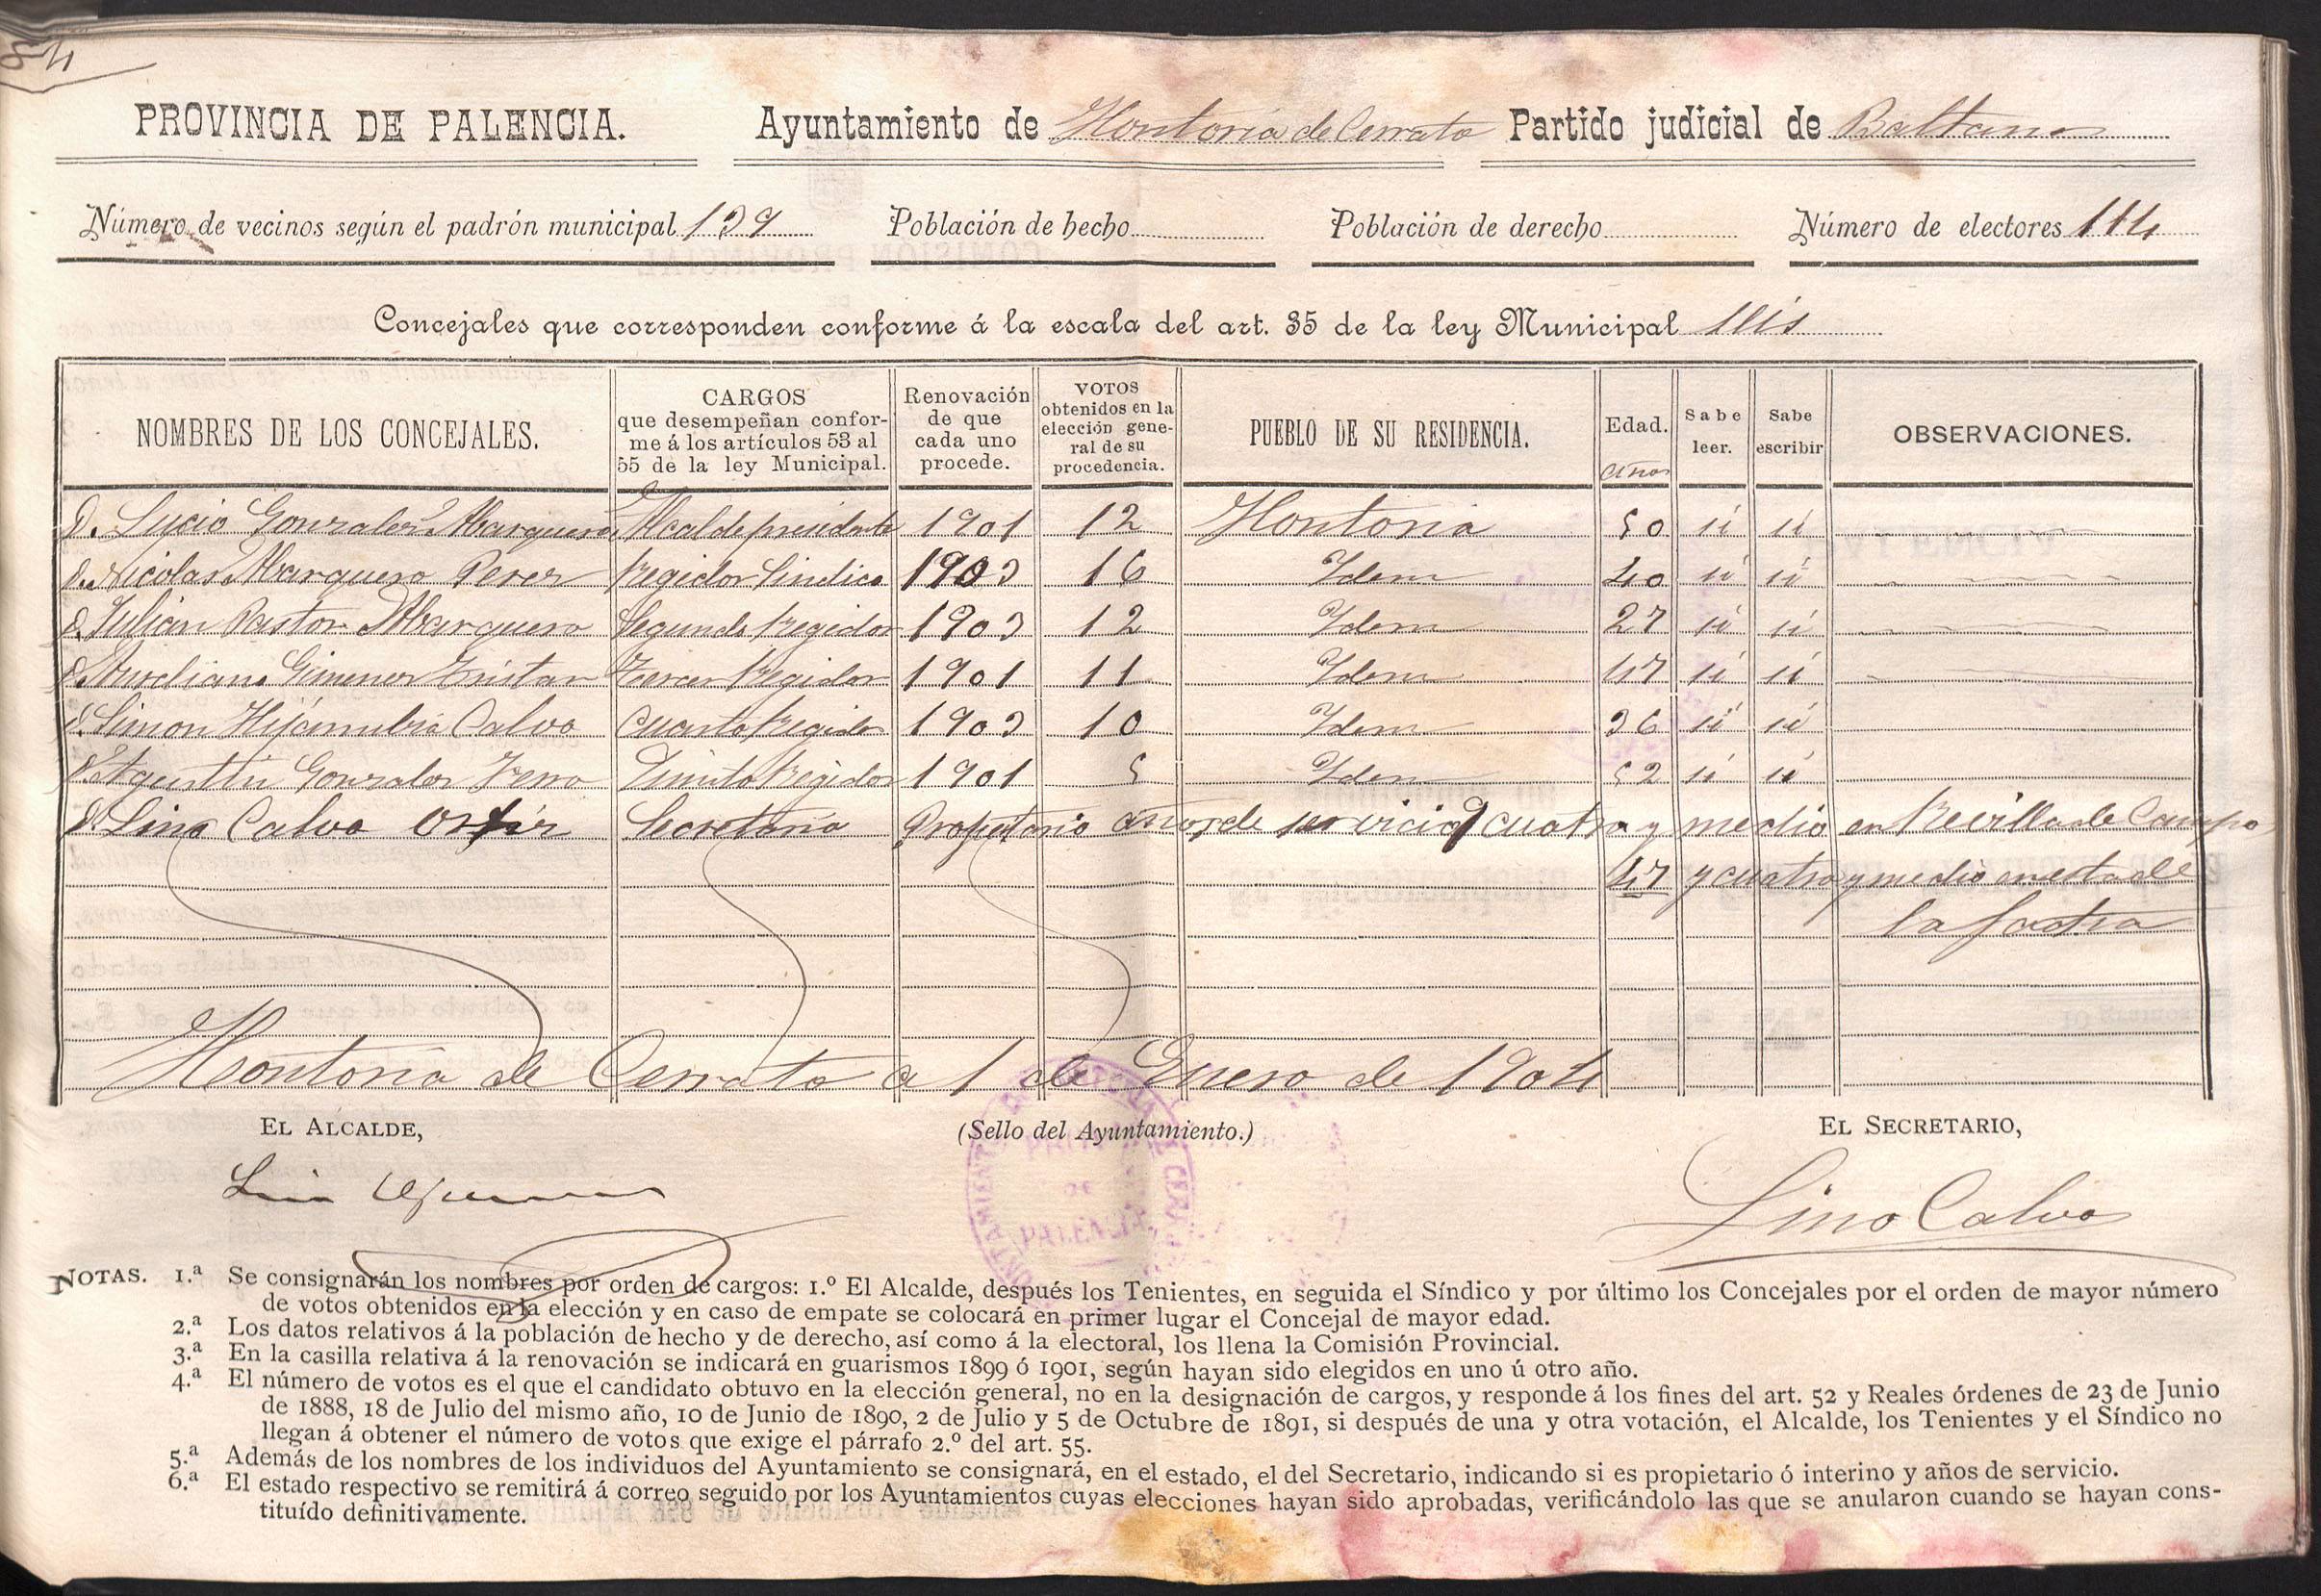 84
PROVINCIA DE PALENCIA. Ayuntamiento de Hontoria de Cerrato Partido judicial de Baltanas
Número de vecinos según el padrón municipal 139 Población de hecho Población de derecho Número de electores 114
Concejales que corresponden conforme á la escala del art. 35 de la ley Municipal seis
NOMBRES DE LOS CONCEJALES. CARGOS que desempeñan confor- me á los artículos 53 al 55 de la ley Municipal. Renovación de que cada uno procede. VOTOS obtenidos en la elección gene- ral de su procedencia. PUEBLO DE SU RESIDENCIA. Edad. años Sabe leer. Sabe escribir OBSERVACIONES.
D. Lucio Gonzalez Abarquero Alcalde presidente 1901 12 Hontoria 50 si si
D. Nicolas Abarquero Perez Regidor Sindico 1903 16 Idem 40 si si
D. Julian Pastor Abarquero Segundo Regidor 1903 12 Idem 27 si si
D. Aureliano Gimenez Tristan Tercer Regidor 1901 11 Idem 47 si si
D. Simon Hijarrubia Calvo Cuarto Regidor 1903 10 Idem 36 si si
D. Agustin Gonzalez Q̶uinto Regidor 1901 5 Idem 52 si si
D. Lino Calvo Secretario Propietario años de servicio cuatro y medio en Revilla de Campo
47 y cuatro y medio en esta de
la fecha
Hontoria de Cerrato a 1 de Enero de 1904
EL ALCALDE, (Sello del Ayuntamiento.) EL SECRETARIO,
AYUNTAMIENTO DE HONTORIA DE CERRATO
PROV.
DE
PALENCIA
Lino Calvo
NOTAS. 1.ª Se consignarán los nombres por orden de cargos: 1.º El Alcalde, después los Tenientes, en seguida el Síndico y por último los Concejales por el orden de mayor número
de votos obtenidos en la elección y en caso de empate se colocará en primer lugar el Concejal de mayor edad.
2.ª Los datos relativos á la población de hecho y de derecho, así como á la electoral, los llena la Comisión Provincial.
3.ª En la casilla relativa á la renovación se indicará en guarismos 1899 ó 1901, según hayan sido elegidos en uno ú otro año.
4.ª El número de votos es el que el candidato obtuvo en la elección general, no en la designación de cargos, y responde á los fines del art. 52 y Reales órdenes de 23 de Junio
de 1888, 18 de Julio del mismo año, 10 de Junio de 1890, 2 de Julio y 5 de Octubre de 1891, si después de una y otra votación, el Alcalde, los Tenientes y el Síndico no
llegan á obtener el número de votos que exige el párrafo 2.º del art. 55.
5.ª Además de los nombres de los individuos del Ayuntamiento se consignará, en el estado, el del Secretario, indicando si es propietario ó interino y años de servicio.
6.ª El estado respectivo se remitirá á correo seguido por los Ayuntamientos cuyas elecciones hayan sido aprobadas, verificándolo las que se anularon cuando se hayan cons-
tituído definitivamente.